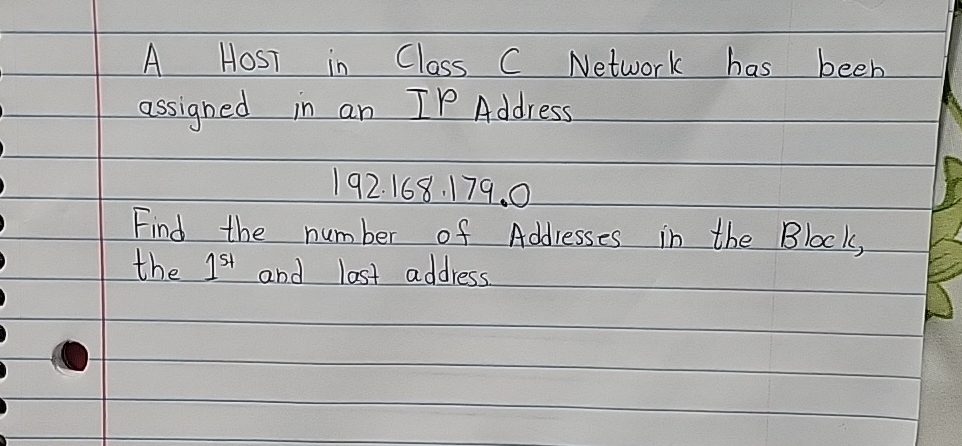 A HOST in Class C Network has been
assigned in an IP Address
192.168.179.0
Find the number of Addresses in the Block,
the 1st and last address.